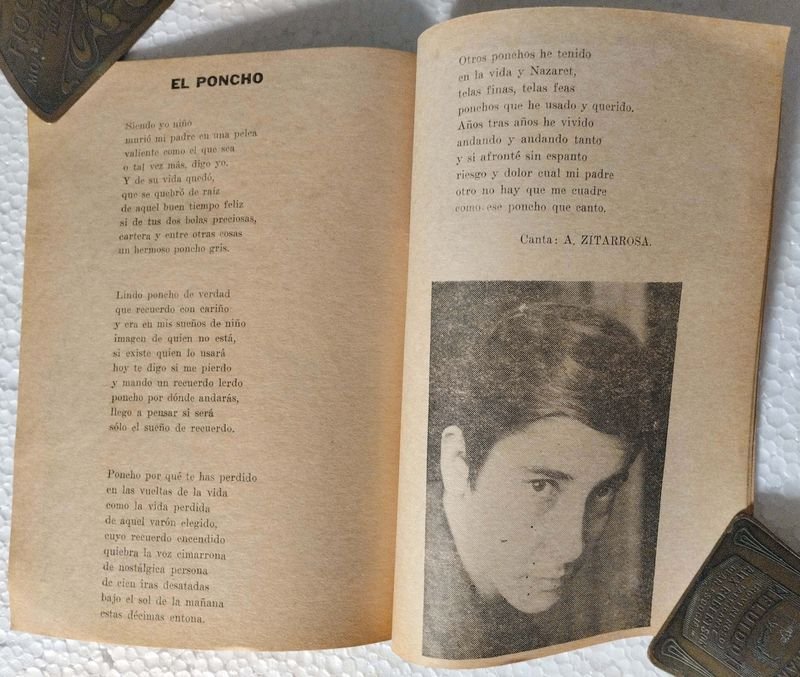 EL PONCHO
Siendo yo niño
murió mi padre en una pelea
valiente como el que sea
o tal vez más, digo yo.
Y de su vida quedó,
que se quebró de raíz
de aquel buen tiempo feliz
si de tus dos bolas preciosas,
cartera y entre otras cosas
un hermoso poncho gris.
Lindo poncho de verdad
que recuerdo con cariño
y era en mis sueños de niño
imagen de quien no está,
si existe quien lo usará
hoy te digo si me pierdo
y mando un recuerdo lerdo
poncho por dónde andarás,
llego a pensar si será
sólo el sueño de recuerdo.
Poncho por qué te has perdido
en las vueltas de la vida
como la vida perdida
de aquel varón elegido,
cuyo recuerdo encendido
quiebra la voz cimarrona
de nostálgica persona
de cien iras desatadas
bajo el sol de la mañana
estas décimas entona.
Otros ponchos he tenido
en la vida y Nazaret,
telas finas, telas feas
ponchos que he usado y querido.
Años tras años he vivido
andando y andando tanto
y si afronté sin espanto
riesgo y dolor cual mi padre
otro no hay que me cuadre
como ese poncho que canto.
Canta: A. ZITARROSA.